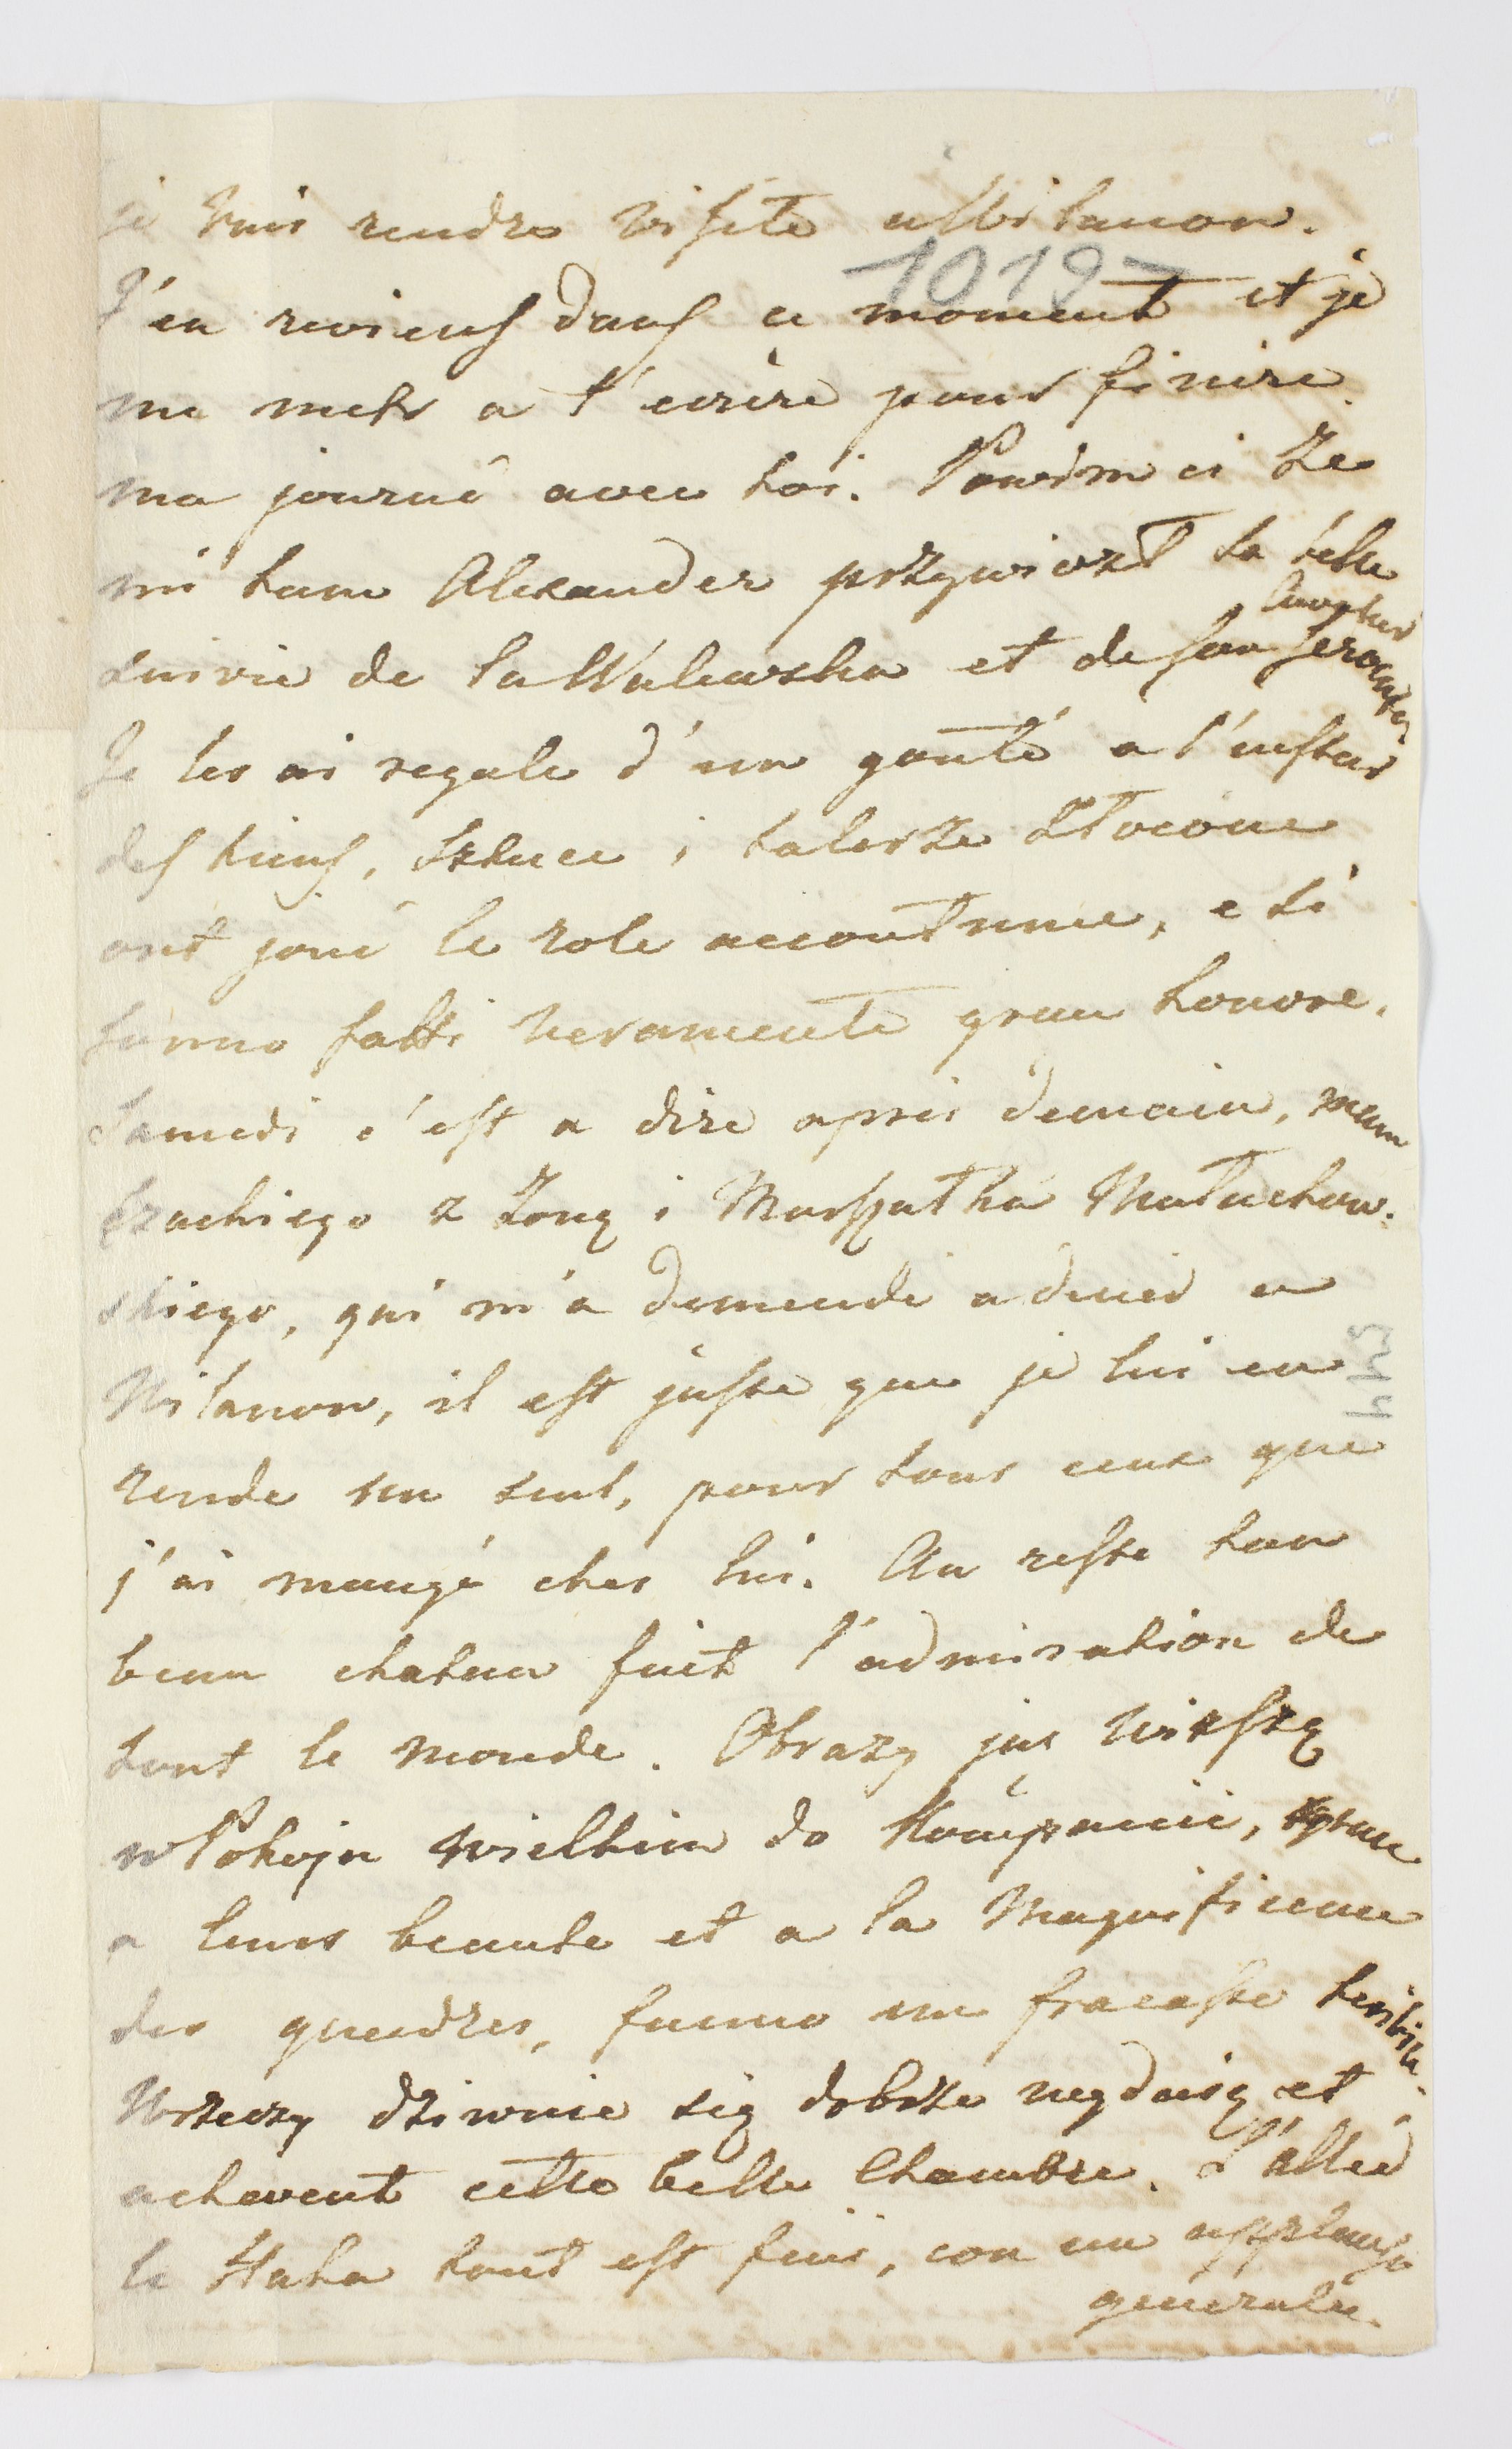 je vais rendre visite a Wilanow.
1019
J'en reviens dans ce moment et je
me mets a t'ecrire pour finire
ma journé avec toi. Powiem ci że
mi tam Alexander przywiozł la belle
suivie de la Walewska et de son
Je les ai regale d'un gouté a l'instar
des tiens, sztuce i talerze złocone
ont joué le role accoutumée, e si
fanno fatti veramente gran honore.
Samedi c'est a dire apres demain, mam
z Żoną i Marszałka Małachow-
skiego, qui m'a demendé a diner a
Wilanow, il est juste que je lui en
rende un seul, pour tous ceux que
j'ai mangé ches lui. Au reste ton
beau chateau fait l'admiration de
tout le monde. Obrazy już wiszą
w Pokoju wielkim do Kompanii, grace
a leurs beaute et a la Magnificence
des quadres, fanno un fracasso terribile.
W rzeczy dziwnie się dobrze wydaią et
achevent cette belle Chambre. L'allée
le Haha tout est fini, con un applauso
generale.